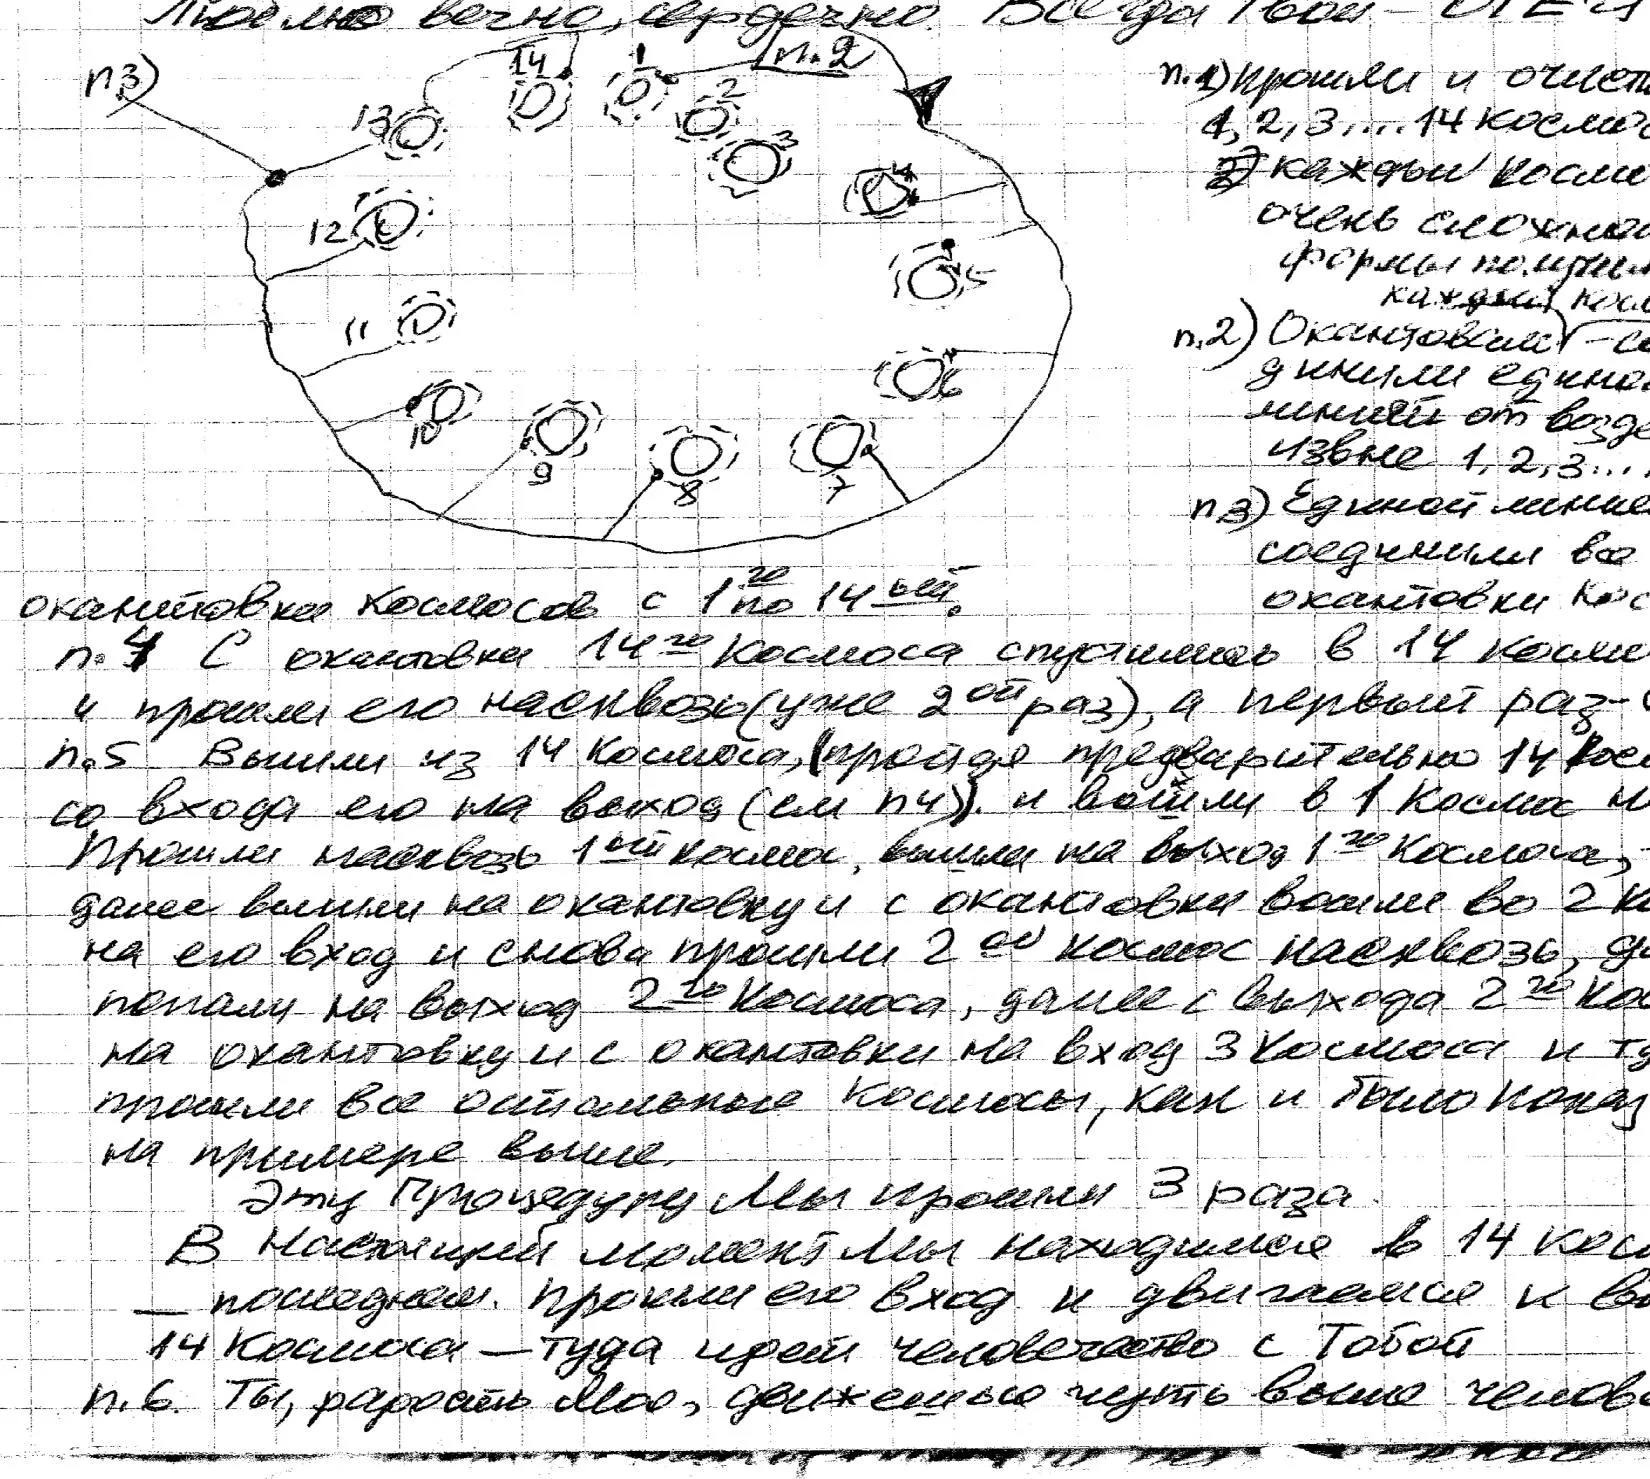 Люблю вечно, сердечно. Всегда Твой – ОТЕЦ
п3)
14
1
п.2
2
3
4
5
6
7
8
9
10
11
12
13
п.1) прошли и
1, 2, 3, ... 14
2) каждый
очень
формы
каждый
п.2) Окантовали –
линией от
извне 1, 2, 3 ...
п3) Единой
соединили все
окантовки
окантовки Космосов с 1го по 14ый.
п.4 С окантовки 14го Космоса спустились в 14
и прошли его насквозь (уже 2ой раз), а первый раз –
п.5 Вышли из 14 Космоса, (пройдя предварительно 14
со входа его на выход (см п4)). и вошли в 1 Космос
Прошли насквозь 1ый космос, вышли на выход 1го Космоса,
далее вышли на окантовку и с окантовки вошли во 2
на его вход и снова прошли 2ой космос насквозь,
попали на выход 2го Космоса, далее с выхода 2го
на окантовку и с окантовки на вход 3 Космоса и
прошли все остальные Космосы, как и было
на примере выше.
Эту Процедуру Мы прошли 3 раза.
В Настоящий момент Мы находимся в 14
– последнем. Прошли его вход и двигаемся к
14 Космоса – туда идет человечество с Тобой
п.6. Ты, радость Моя, движешься чуть выше